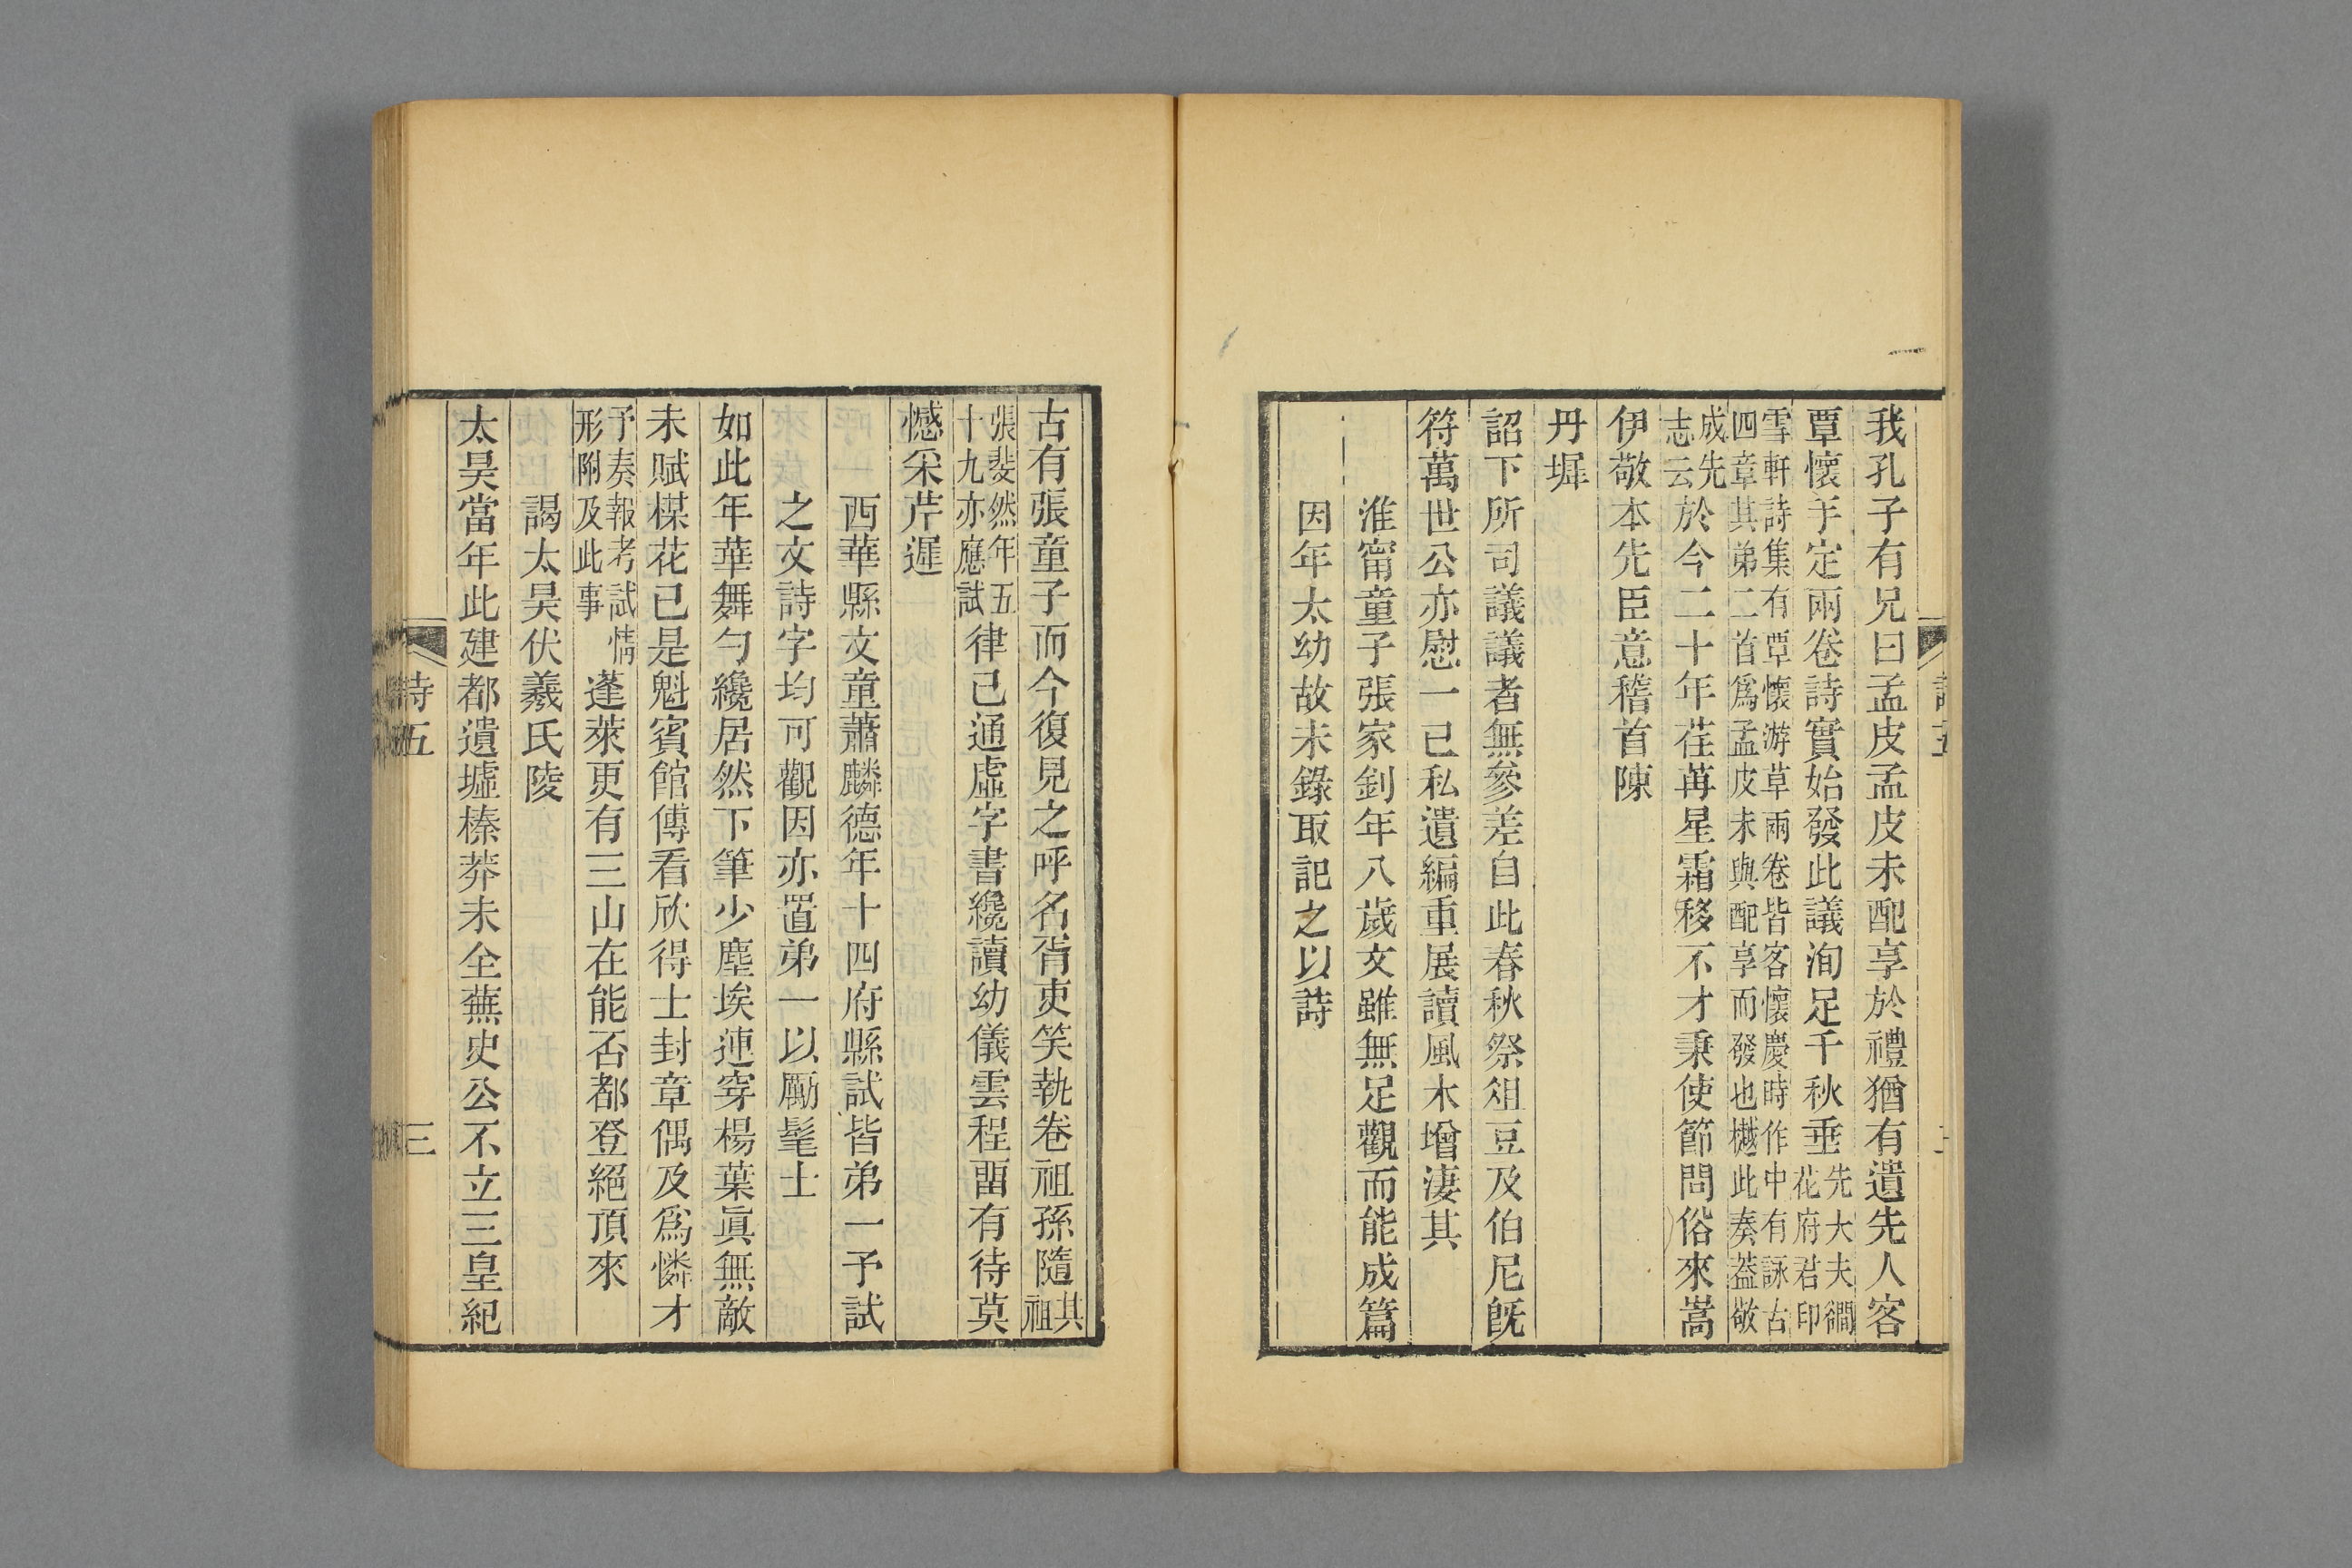 我孔子有兄曰孟皮孟皮未配享於禮猶有遺先人客
覃懷手定兩卷詩實始發此議洵足千秋垂先大夫礀
花府君印
雪軒詩集有覃懷游草兩卷皆客懷慶時作中有詠古
四章其弟二首爲孟皮未與配享而發也樾此奏蓋敬
成先
志云於今二十年荏苒星霜移不才秉使節問俗來嵩
伊敬本先臣意稽首陳
丹墀
詔下所司議議者無參差自此春秋祭俎豆及伯尼旣
符萬世公亦慰一己私遺編重展讀風木增淒其
淮甯童子張家釗年八歲文雖無足觀而能成篇
因年太幼故未錄取記之以詩
古有張童子而今復見之呼名胥吏笑執卷祖孫隨其
祖
張斐然年五
十九亦應試律已通虛字書纔讀幼儀雲程畱有待莫
憾采芹遲
西華縣文童蕭麟德年十四府縣試皆弟一予試
之文詩字均可觀因亦置弟一以勵髦士
如此年華舞勺纔居然下筆少塵埃連穿楊葉眞無敵
未賦楳花已是魁賓館傳看欣得士封章偶及爲憐才
予奏報考試情
形附及此事蓬萊更有三山在能否都登絕頂來
謁太昊伏羲氏陵
太昊當年此建都遺墟榛莽未全蕪史公不立三皇紀
詩五
三